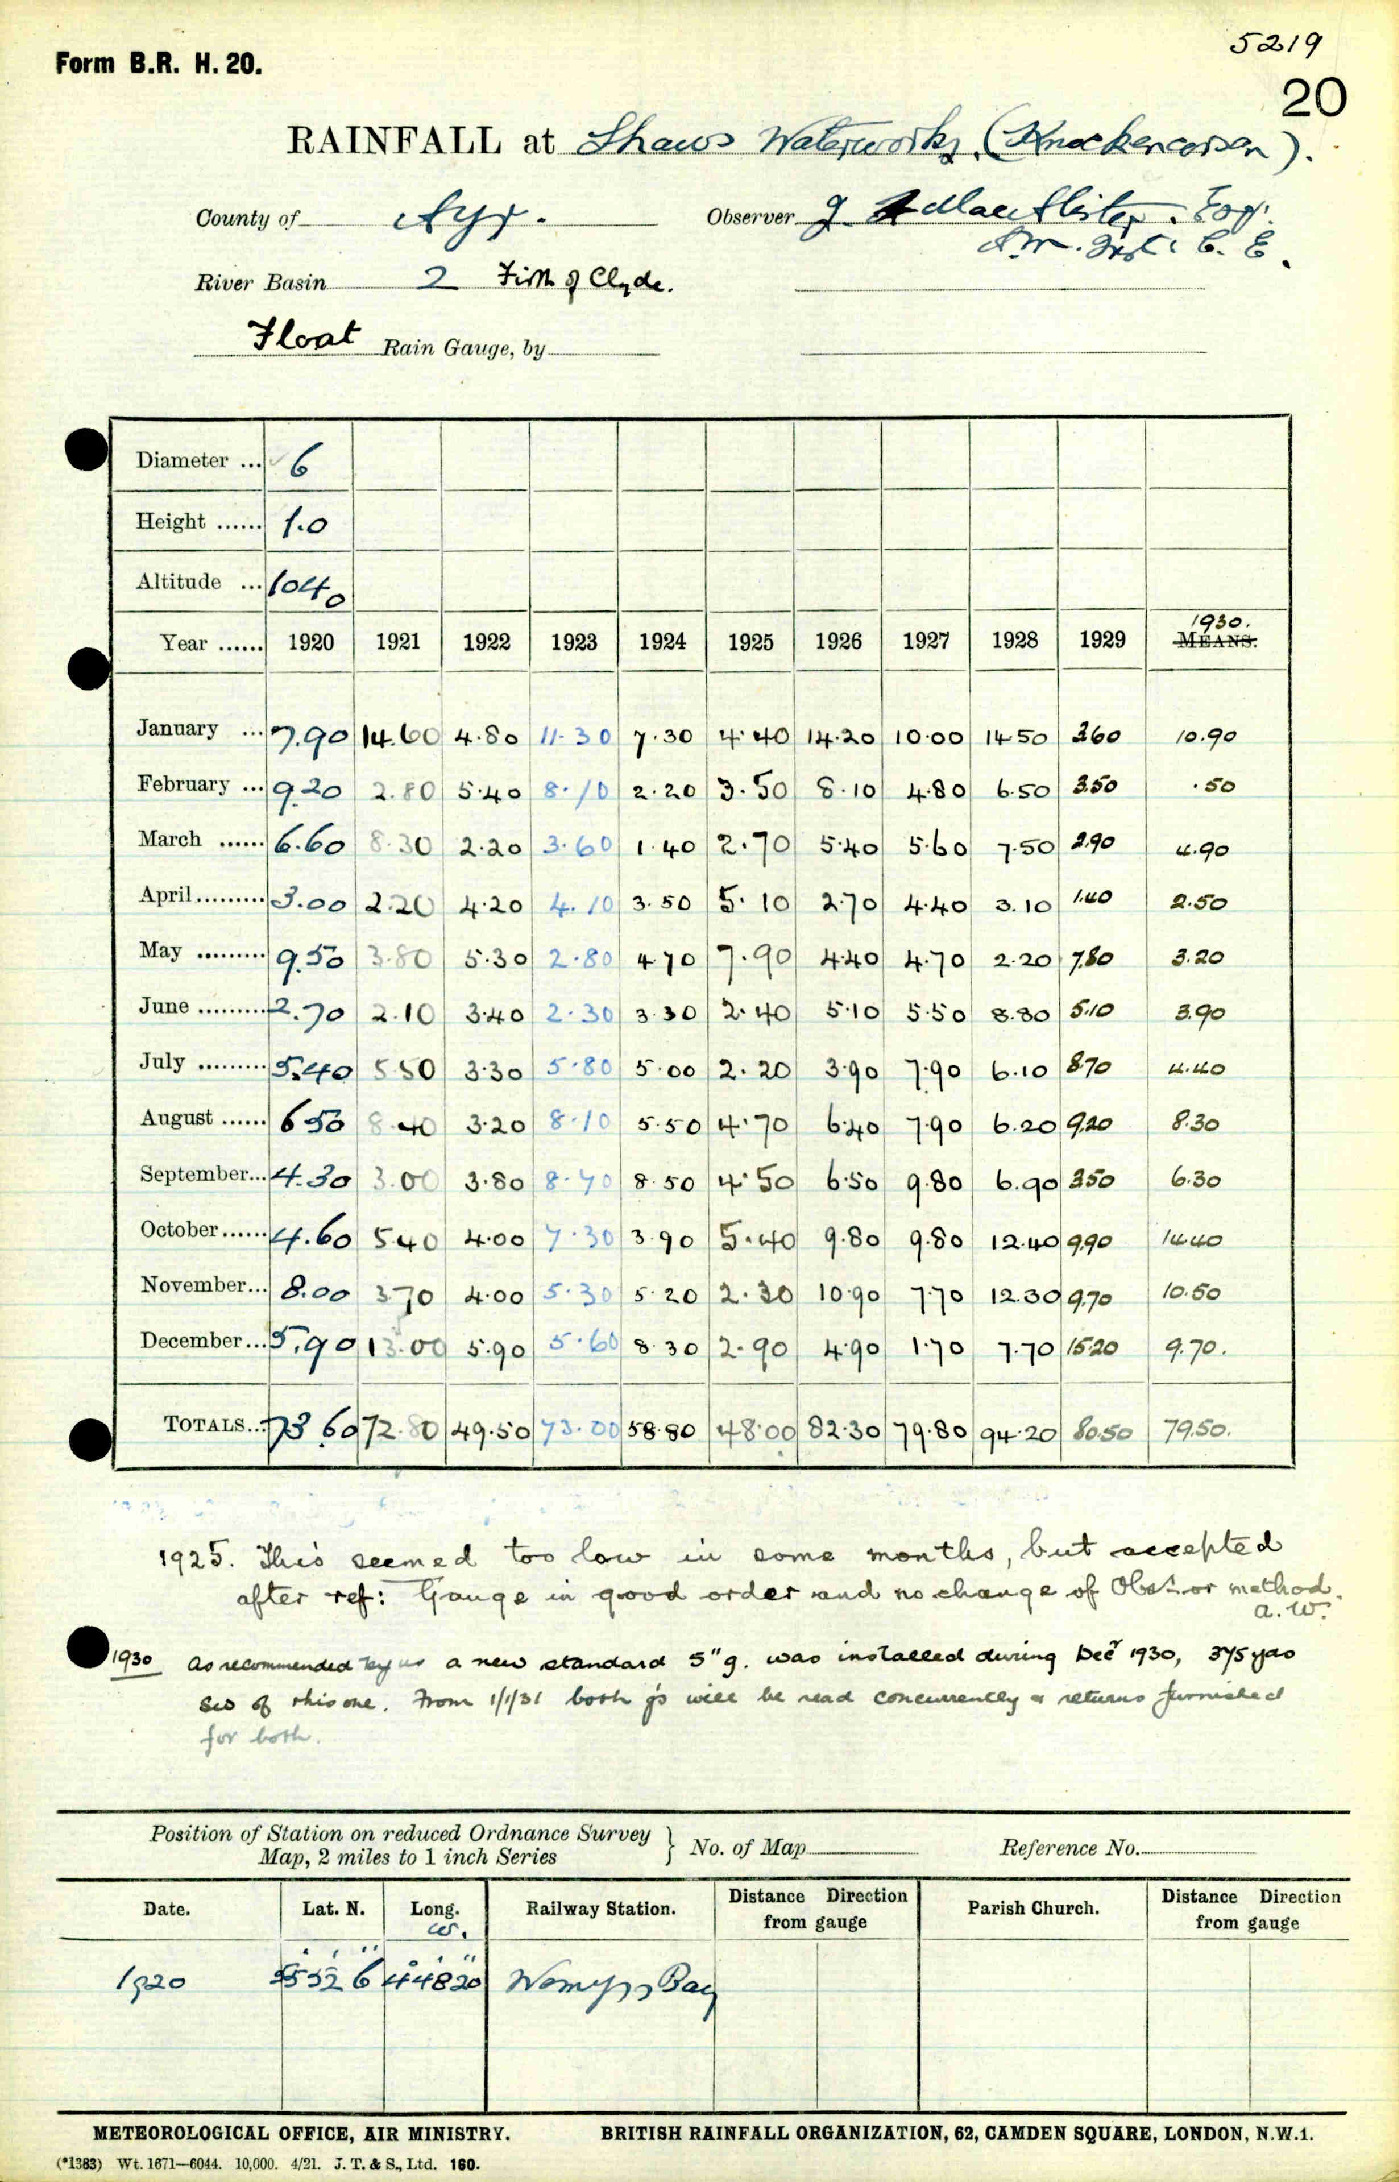 5219
Form B.R. H. 20.
20
RAINFALL at Shaws Waterworks, (Knockencorsan).
County of Ayr. Observer J. A MacAllister. Esq.
A.M. Inst. C. E.
River Basin 2 Firth of Clyde.
Float Rain Gauge, by
Diameter ... 6
Height ...... 1.0
Altitude ... 1040
1930.
Year ...... 1920 1921 1922 1923 1924 1925 1926 1927 1928 1929 MEANS.
January ... 7.90 14.60 4.80 11.30 7.30 4.40 14.20 10.00 14.50 3.60 10.90
February ... 9.20 2.80 5.40 8.10 2.20 3.50 8.10 4.80 6.50 3.50 .50
March ...... 6.60 8.30 2.20 3.60 1.40 2.70 5.40 5.60 7.50 2.90 4.90
April ......... 3.00 2.20 4.20 4.10 3.50 5.10 2.70 4.40 3.10 1.40 2.50
May ......... 9.50 3.80 5.30 2.80 4.70 7.90 4.40 4.70 2.20 7.80 3.20
June ......... 2.70 2.10 3.40 2.30 3.30 2.40 5.10 5.50 8.80 5.10 3.90
July ......... 5.40 5.50 3.30 5.80 5.00 2.20 3.90 7.90 6.10 8.70 4.40
August ...... 6.50 8.40 3.20 8.10 5.50 4.70 6.40 7.90 6.20 9.20 8.30
September... 4.30 3.00 3.80 8.70 8.50 4.50 6.50 9.80 6.90 3.50 6.30
October...... 4.60 5.40 4.00 7.30 3.90 5.40 9.80 9.80 12.40 9.90 14.40
November... 8.00 3.70 4.00 5.30 5.20 2.30 10.90 7.70 12.30 9.70 10.50
December... 5.90 13.00 5.90 5.60 8.30 2.90 4.90 1.70 7.70 15.20 9.70.
TOTALS... 73.60 72.80 49.50 73.00 58.80 48.00 82.30 79.80 94.20 80.50 79.50.
1925. This seemed too low in some months, but accepted
after ref: Gauge in good order and no change of Obsr. or method.
A. W.
1930 As recommended by us a new standard 5" g. was installed during Decr 1930, 375 yds
SW of this one. From 1/1/31 both g's will be read concurrently & returns furnished
for both.
Position of Station on reduced Ordnance Survey Map, 2 miles to 1 inch Series } No. of Map Reference No.
Date. Lat. N. Long. W. Railway Station. Distance Direction from gauge Parish Church. Distance Direction from gauge
1920 55° 52' 6" 4° 48' 20" Wemyss Bay
METEOROLOGICAL OFFICE, AIR MINISTRY. BRITISH RAINFALL ORGANIZATION, 62, CAMDEN SQUARE, LONDON, N.W.1.
(*1383) Wt. 1671—6044. 10,000. 4/21. J. T. & S., Ltd. 160.